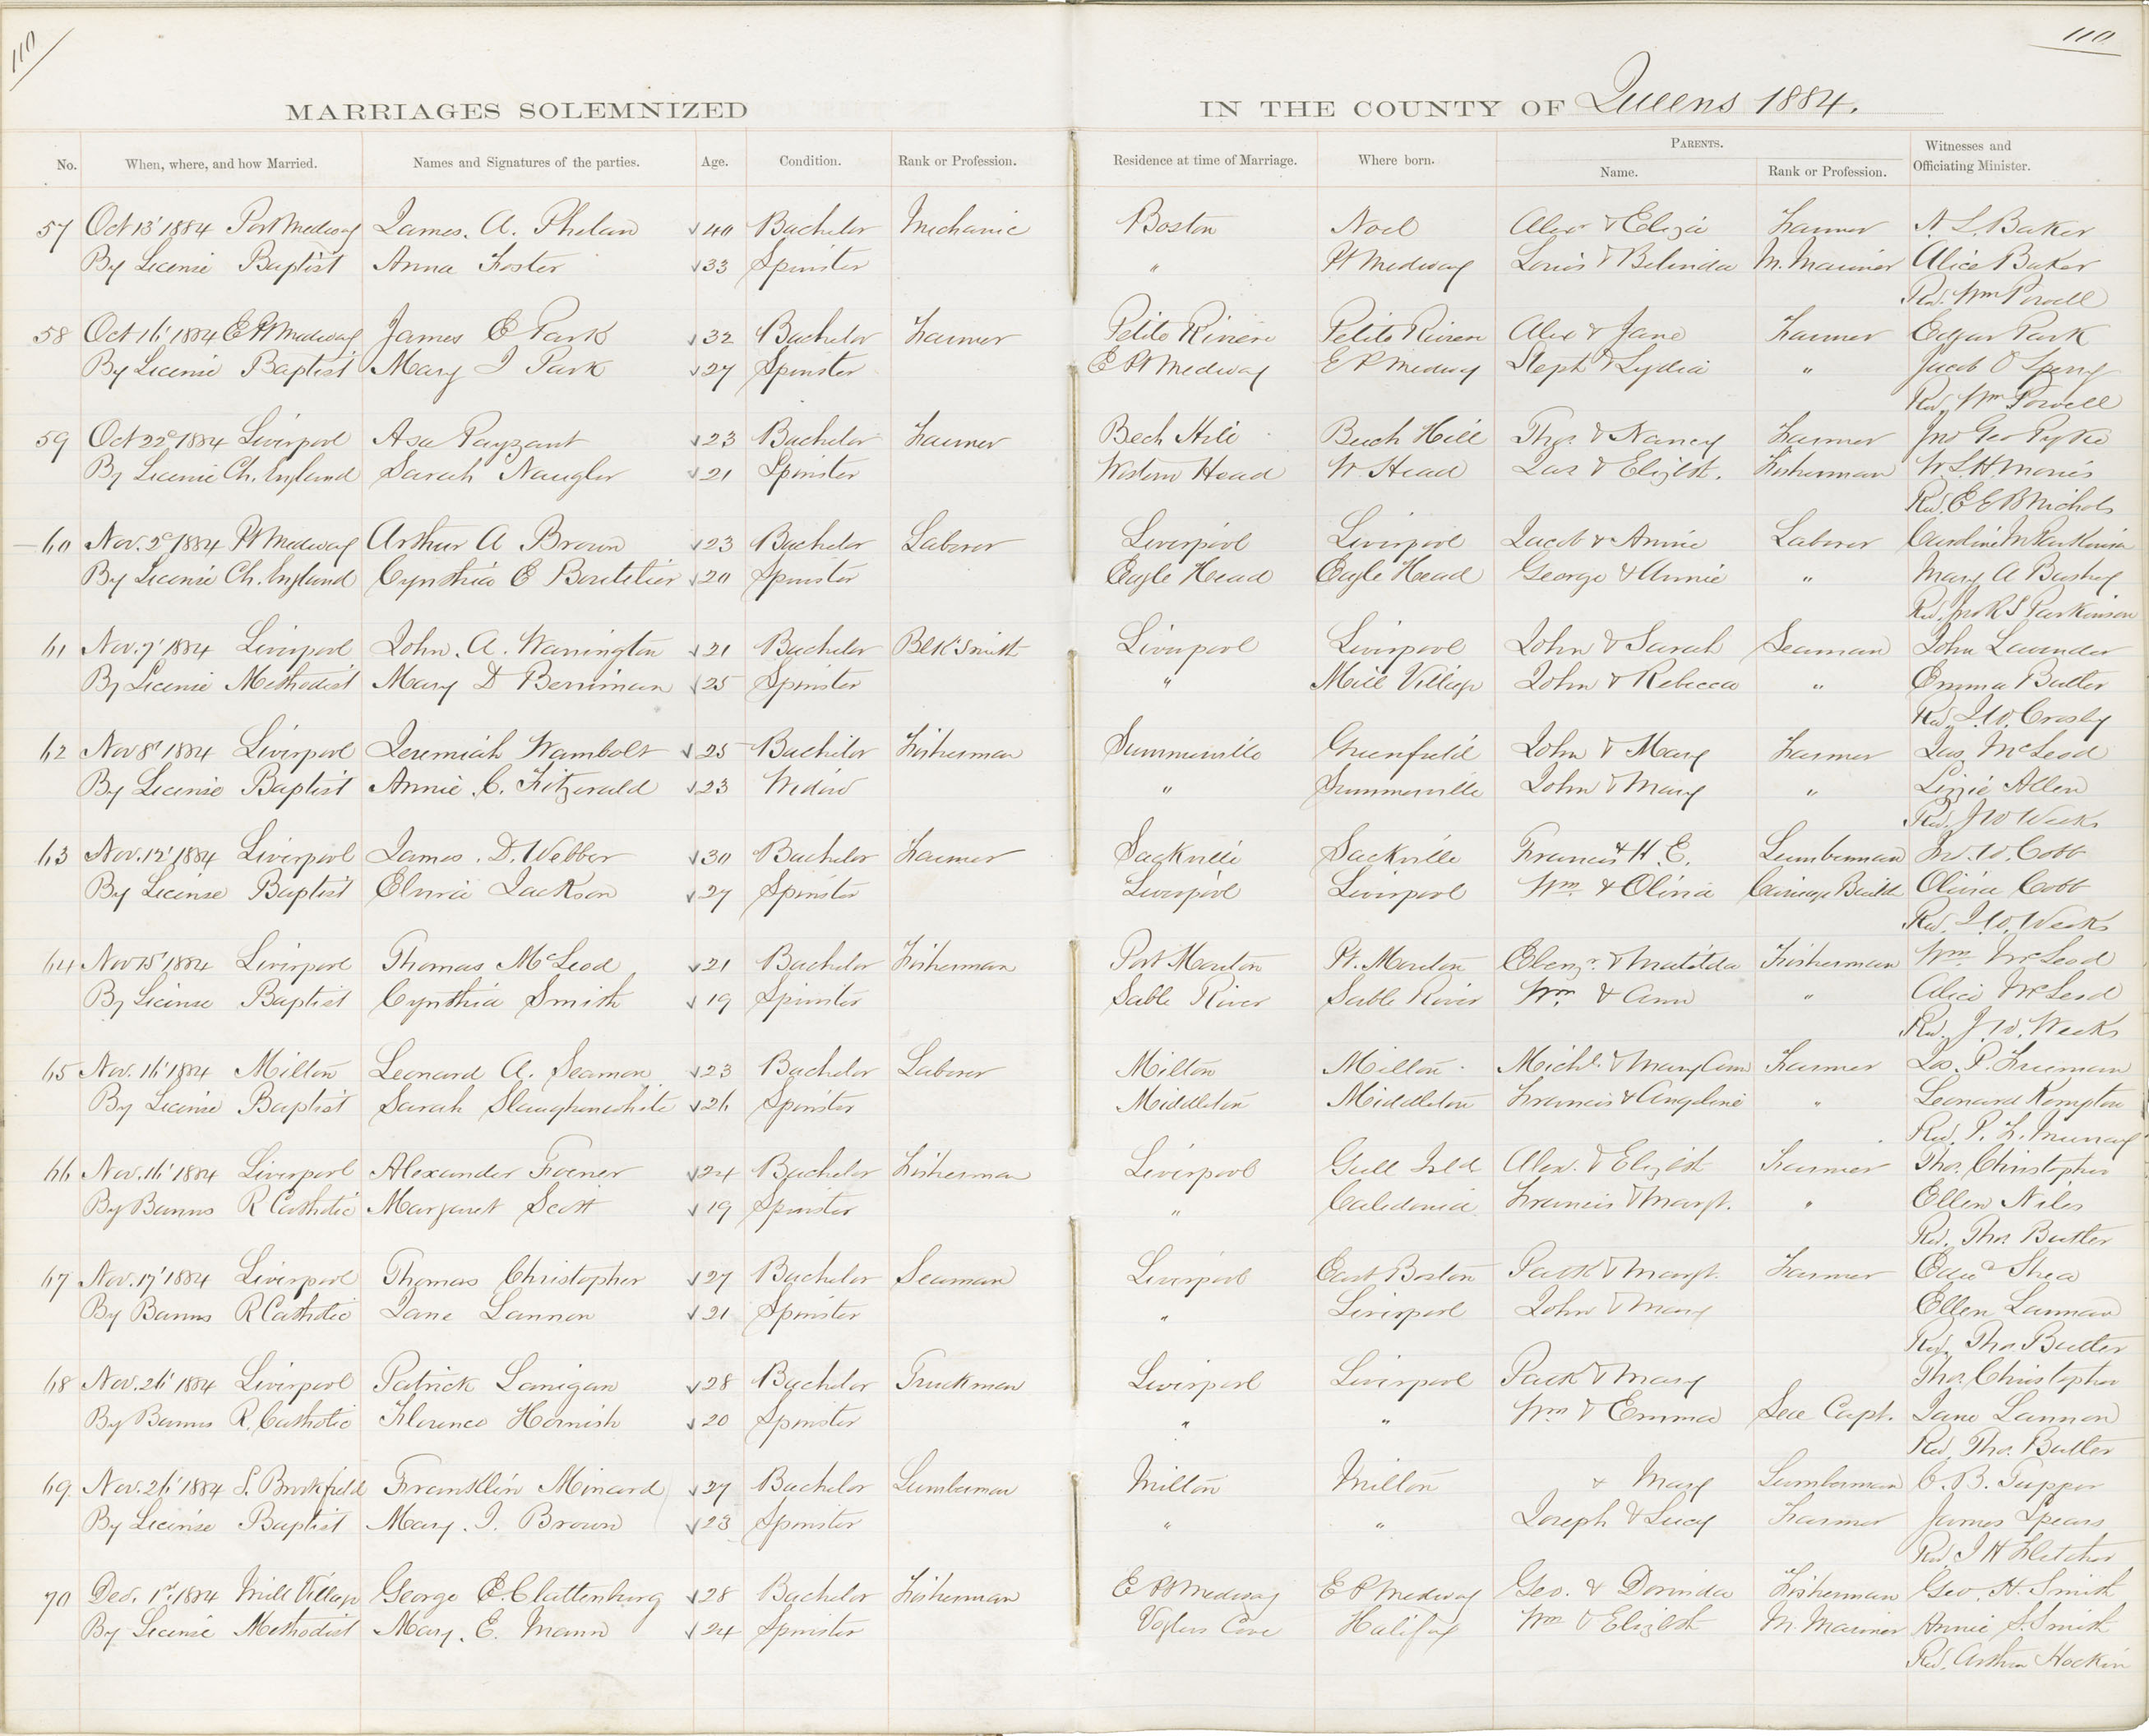 110
110
MARRIAGES SOLEMNIZED IN THE COUNTY OF Queens 1884.
No. When, where, and how Married. Names and Signatures of the parties. Age. Condition. Rank or Profession. Residence at time of Marriage. Where born. PARENTS. Name. Rank or Profession. Witnesses and Officiating Minister.
57 Oct 13' 1884 Port Medway James. A. Phelan 40 Bachelor Mechanic Boston Noel Alexr & Eliza Farmer A. L. Baker
By License Baptist Anna Foster 33 Spinster " Pt Medway Louis & Belinda M. Mariner Alice Baker
Rev. Wm Powell
58 Oct 16' 1884 E Pt Medway James E Park 32 Bachelor Farmer Petite Riviere Petite Riviere Alex & Jane Farmer Edgar Park
By License Baptist Mary J Park 27 Spinster E Pt Medway E P Medway Steph & Lydia " Jacob O Sperry
Rev. Wm Powell
59 Oct 22d 1884 Liverpool Asa Payzant 23 Bachelor Farmer Bech Hill Beech Hill Thos. & Nancy Farmer Jno Geo Pyke
By License Ch. England Sarah Naugler 21 Spinster Western Head W. Head Jas & Elizbt. Fisherman W. S. H. Morris
Rev. E E B Nichols
60 Nov. 2d 1884 Pt Medway Arthur A Brown 23 Bachelor Laborer Liverpool Liverpool Jacob & Annie Laborer Caroline M Parkinson
By License Ch. England Cynthia E Boutilier 20 Spinster Eagle Head Eagle Head George & Annie " Mary A
Rev. Jno R S Parkinson
61 Nov. 7' 1884 Liverpool John. A. Warrington 21 Bachelor Blk Smith Liverpool Liverpool John & Sarah Seaman John Lavender
By License Methodist Mary D Berriman 25 Spinster " Mill Village John & Rebecca " Emma Butler
Rev. J. W. Crosby
62 Nov 8' 1884 Liverpool Jeremiah Wambolt 25 Bachelor Fisherman Summerville Greenfield John & Mary Farmer Jas. McLeod
By License Baptist Annie. C. Fitzerald 23 Widow " Summerville John & Mary " Lizzie Allen
Rev. J W Weeks
63 Nov. 12' 1884 Liverpool James. D. Webber 30 Bachelor Farmer Sackville Sackville Francis & H. E. Lumberman W. Cobb
By License Baptist Elvira Jackson 27 Spinster Liverpool Liverpool Wm. & Olivia Carriage Build Olivia Cobb
Rev. J. W. Weeks
64 Nov 15' 1884 Liverpool Thomas McLeod 21 Bachelor Fisherman Port Mouton Pt. Mouton Ebenzr. & Matilda Fisherman Wm McLeod
By License Baptist Cynthia Smith 19 Spinster Sable River Sable River Wm & Ann " Alice McLeod
Rev. J. W. Weeks
65 Nov. 16' 1884 Milton Leonard A. Seaman 23 Bachelor Laborer Milton Milton Michl. & Mary Ann Farmer Jos. P. Freeman
By License Baptist Sarah Slaughenwhite 26 Spinster Middleton Middleton Francis & Angeline " Leonard Kempton
Rev. P. F. Murray
66 Nov. 16' 1884 Liverpool Alexander 24 Bachelor Fisherman Liverpool Gull Isld Alex. & Elizbt Farmer Thos. Christopher
By Banns R Catholic Margaret Scott 19 Spinster " Caledonia Francis & Margt. " Ellen Niles
Rev. Thos Butler
67 Nov. 17' 1884 Liverpool Thomas Christopher 27 Bachelor Seaman Liverpool East Boston Patk & Margt. Farmer Edwd Shea
By Banns R Catholic Jane Lannon 21 Spinster " Liverpool John & Mary Ellen Lannan
Rev. Thos Butler
68 Nov. 26' 1884 Liverpool Patrick Lanigan 28 Bachelor Truckman Liverpool Liverpool Patk & Mary Thos. Christopher
By Banns R. Catholic Florence Hornish 20 Spinster " " Wm & Emma Sea Capt. Jane Lannon
Rev. Thos. Butler
69 Nov. 26' 1884 S. Brookfield Franklin Minard 27 Bachelor Lumberman Milton Milton & Mary Lumberman C. B. Tupper
By License Baptist Mary. J. Brown 23 Spinster " " Joseph & Lucy Farmer James Spears
Rev. J H Fletcher
70 Dec. 1st 1884 Mill Village George E. Clattenburg 28 Bachelor Fisherman E Pt Medway E P Medway Geo. & Dorinda Fisherman Geo. H. Smith
By License Methodist Mary. E. Mann 24 Spinster Voglers Cove Halifax Wm & Elizbt M. Mariner Annie S. Smith
Rev. Arthur Hockin